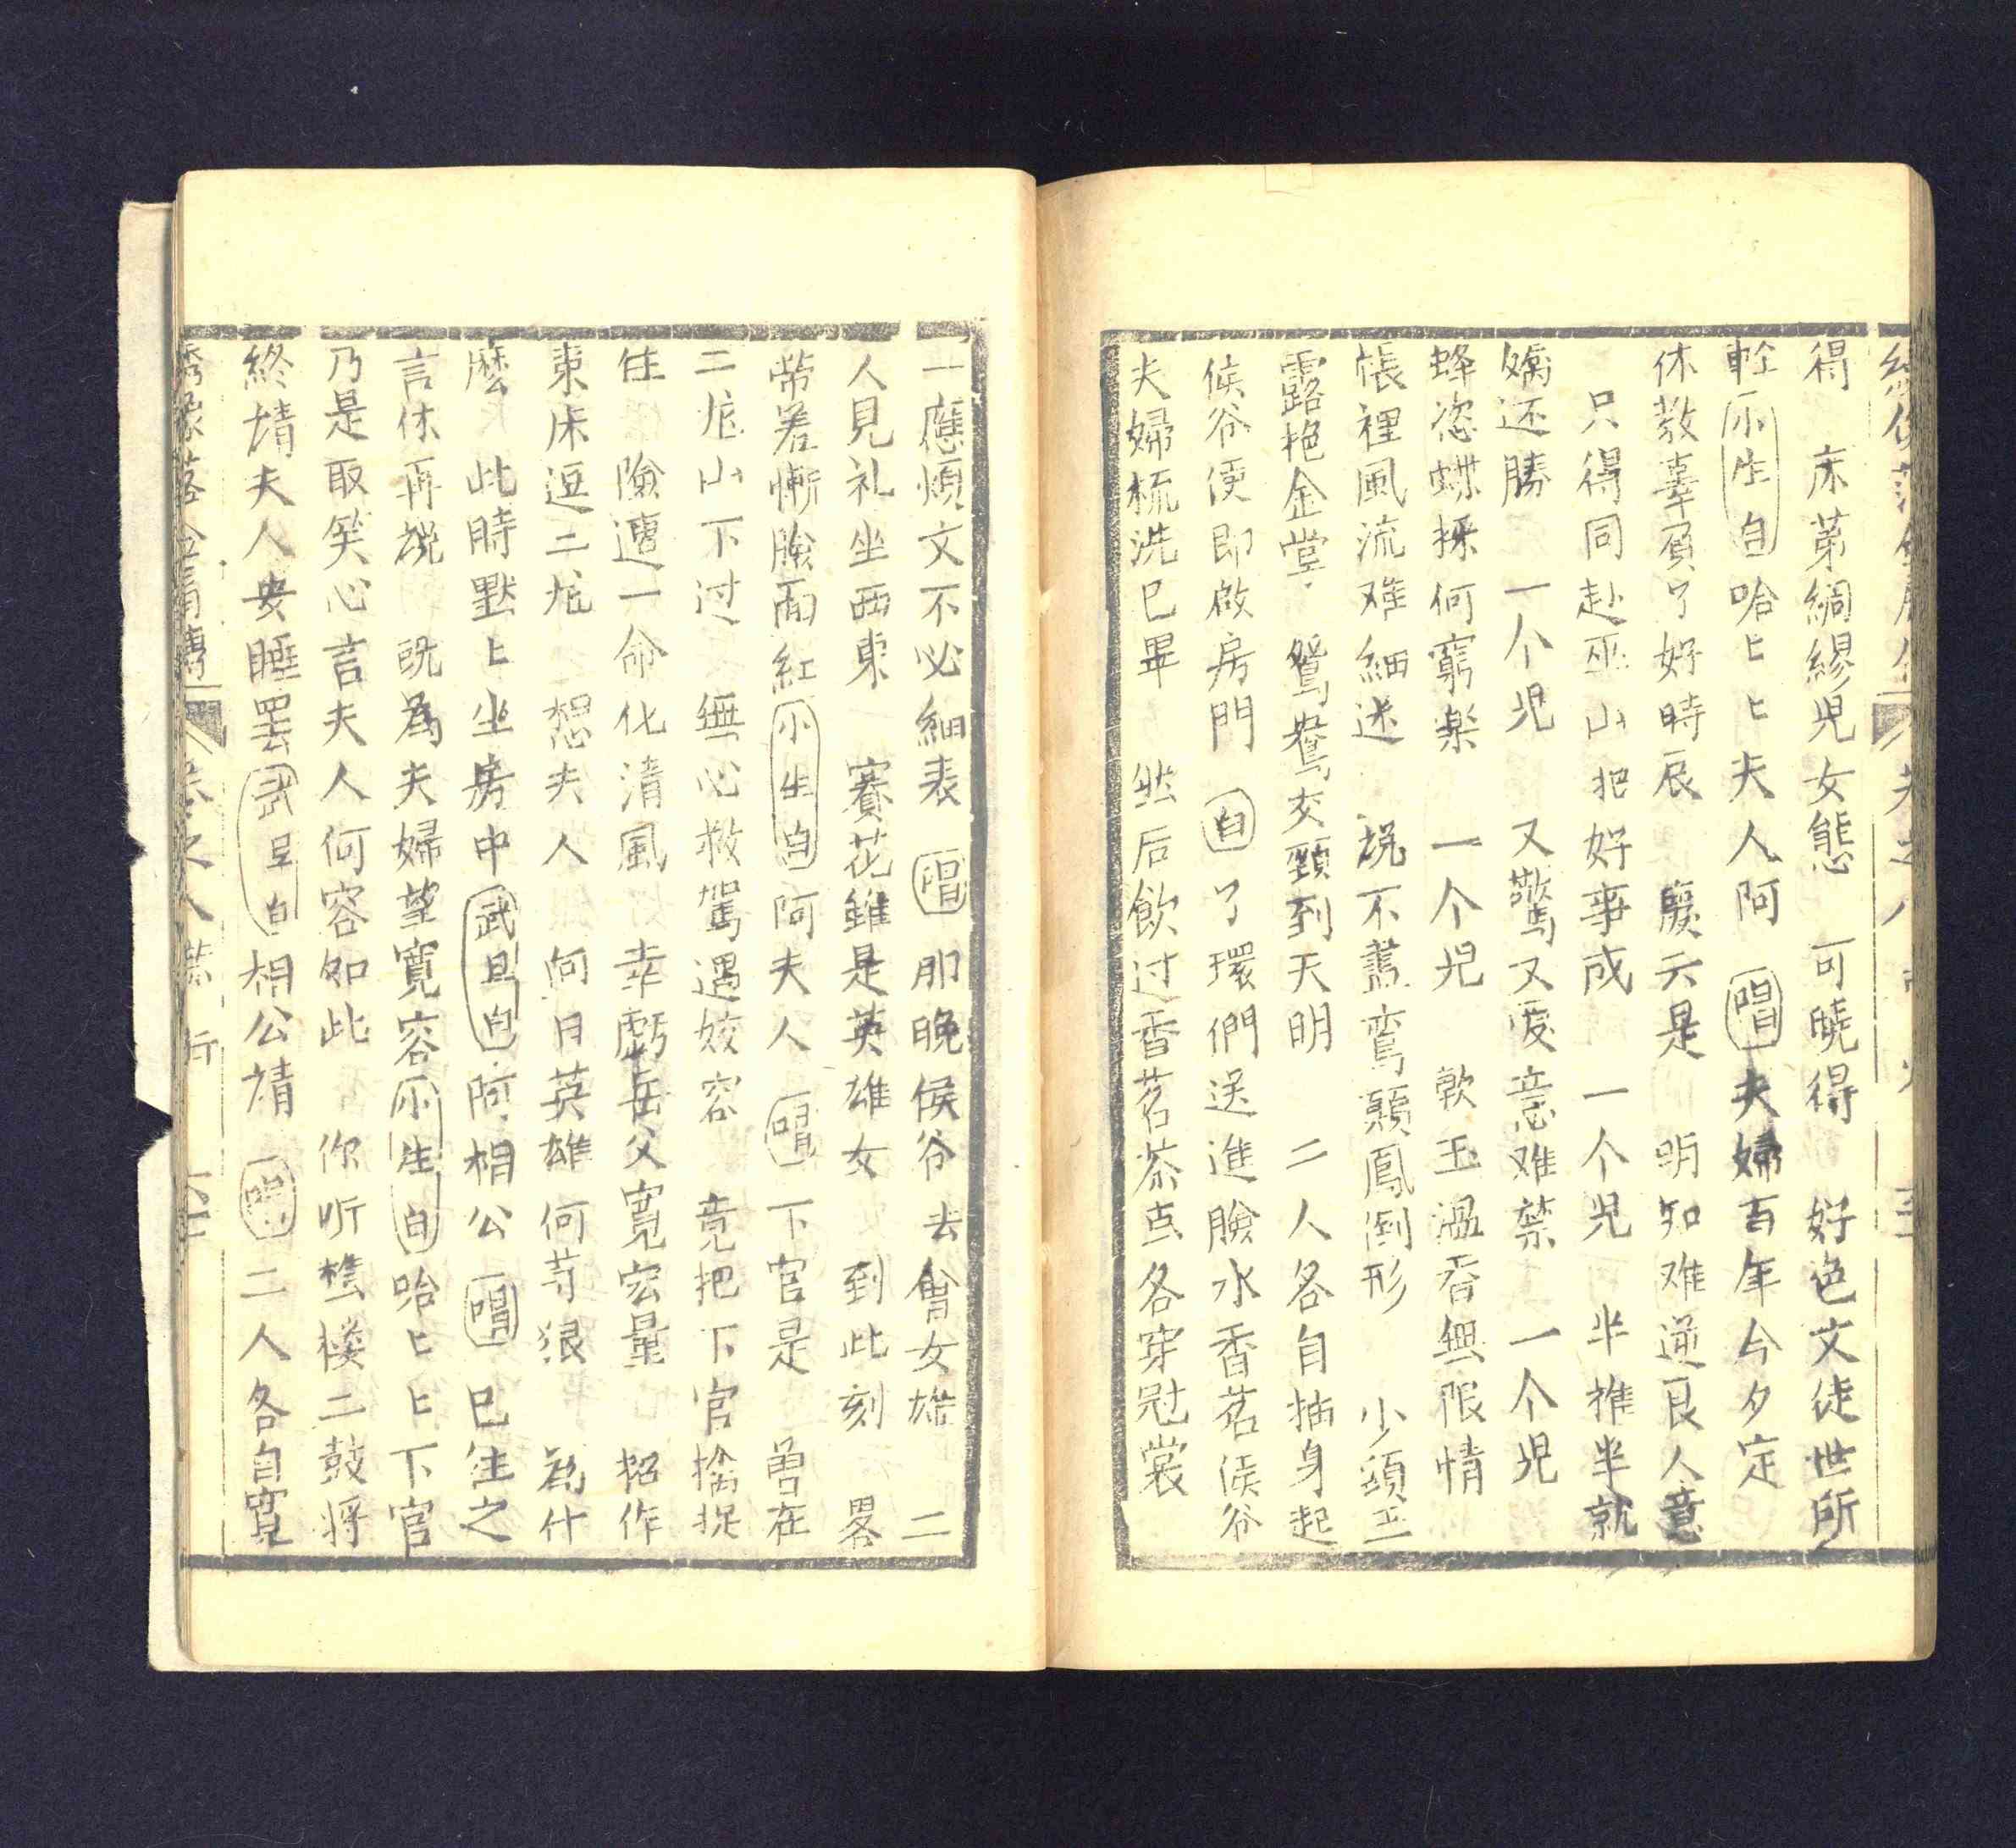 得 床第綢繆兒女態 可曉得 好色文徒世所
軽 小生白 哈〻〻夫人阿 唱 夫婦百年今夕定
休教辜負了好時辰 賡云是 明知难逆良人意
只得同赴巫山把好事成 一个児 半推半就
嬌还勝 一个児 又驚又爱意难禁 一个児
蜂恣蝶採何窮楽 一个児 軟玉温香無限情
帳裡風流难細述 説不盡鸾顛鳳倒形 少頃玉
露挹金掌 鴛鴦交頸到天明 二人各自抽身起
候爷便即啟房門 白 了環們送進臉水香茗侯爷
夫婦梳洗已畢 然后飲过香茗茶点各穿冠裳
一應煩文不必細表 唱 那晚侯爷去會女雄 二
人見礼坐西東 賽花雖是英雄女 到此刻 畧
帶羞慚臉雨紅 小生白 阿夫人 唱 下官是 曽在
二龙山下过 無心救駕遇姣容 竟把下官擒捉
住 險遭一命化清風 幸虧岳父寛宏量 招作
東床逗二龙 想夫人 何日英雄何等狠 為什
麽 此時默〻坐房中 武旦白 阿相公 唱 已往之
言休再説 既為夫婦望寛容 小生白 哈〻〻下官
乃是取笑心言夫人何容如此 你听譙楼二鼓将
終請夫人安睡罢 武旦白 相公請 唱 二人各自寛
綉像落金扇傳 卷之八